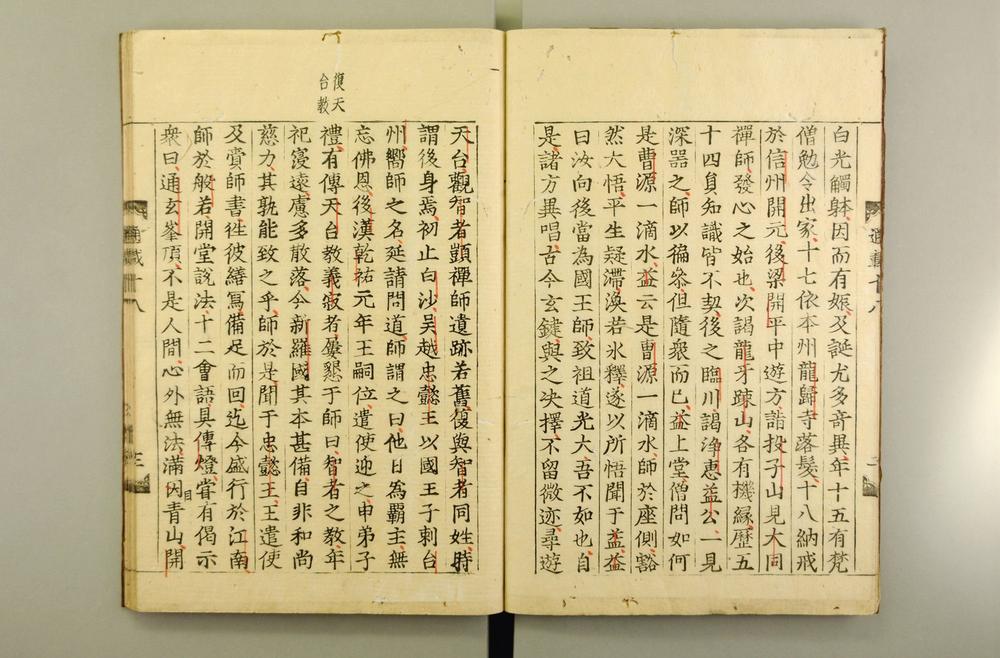 白光觸躰因而有娠及誕尤多竒異年十五有梵
僧勉令出家十七依本州龍歸寺落髮十八納戒
於信州開元後梁開平中遊方詣投子山見大同
禪師發心之始也次謁龍牙踈山各有機縁歷五
十四員知識皆不契後之臨川謁淨惠益公一見
深器之師以徧叅但隨衆而已益上堂僧問如何
是曹源一滴水益云是曹源一滴水師於座側豁
然大悟平生疑滯渙若氷釋遂以所悟聞于益益
曰汝向後當為國王師致祖道光大吾不如也自
是諸方異唱古今玄鍵與之决擇不留微迹尋遊
復天
台教
天台觀智者顗禪師遺跡若舊復與智者同姓時
謂後身焉初止白沙吳越忠懿王以國王子刺台
州嚮師之名延請問道師謂之曰他日為霸主無
忘佛恩後漢乾祐元年王嗣位遣使迎之申弟子
禮有傳天台教義寂者屢懇于師曰智者之教年
祀寖遠慮多散落今新羅國其本甚備自非和尚
慈力其孰能致之乎師於是聞于忠懿王王遣使
及賫師書徃彼繕寫備足而回迄今盛行於江南
師於般若開堂說法十二會語具傳燈甞有偈示
衆曰通玄峯頂不是人間心外無法滿目青山開
通載十八